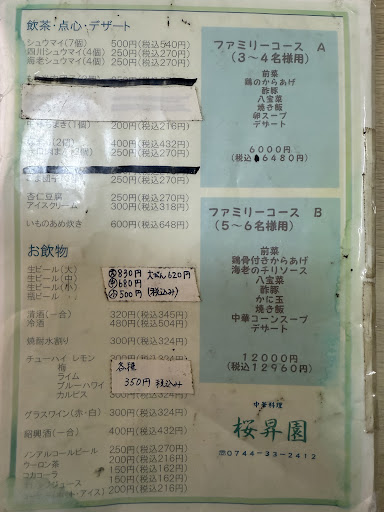 飲茶・点心・デザート
シュウマイ(7個) 500円(税込540円)
四川シュウマイ(4個) 250円(税込270円)
海老シュウマイ(4個) 250円(税込270円)
(1個) 200円(税込216円)
400円(税込432円)
250円(税込270円)
杏仁豆腐 250円(税込270円)
アイスクリーム 300円(税込318円)
いものあめ炊き 600円(税込648円)
お飲物
生ビール(大) 大 890円
生ビール(中) 中 680円
生ビール(小) 小 500円 (税込み)
瓶ビール 大びん620円
清酒(一合) 320円(税込345円)
冷酒 480円(税込504円)
焼酎水割り 300円(税込324円)
チューハイ レモン 300円(税込324円)
梅
ライム
ブルーハワイ
カルピス 300円(税込324円)
各種
350円 税込み
グラスワイン(赤・白) 300円(税込324円)
紹興酒(一合) 400円(税込432円)
ノンアルコールビール 250円(税込270円)
ウーロン茶 200円(税込216円)
コカコーラ 150円(税込162円)
ジュース 150円(税込162円)
ト・アイス) 200円(税込216円)
ファミリーコース A
(3〜4名様用)
前菜
鶏のからあげ
酢豚
八宝菜
焼き飯
卵スープ
デザート
6000円
(税込6480円)
ファミリーコース B
(5〜6名様用)
前菜
鶏骨付きからあげ
海老のチリソース
八宝菜
酢豚
かに玉
焼き飯
中華コーンスープ
デザート
12000円
(税込12960円)
中華料理
桜昇園
☎0744-33-2412